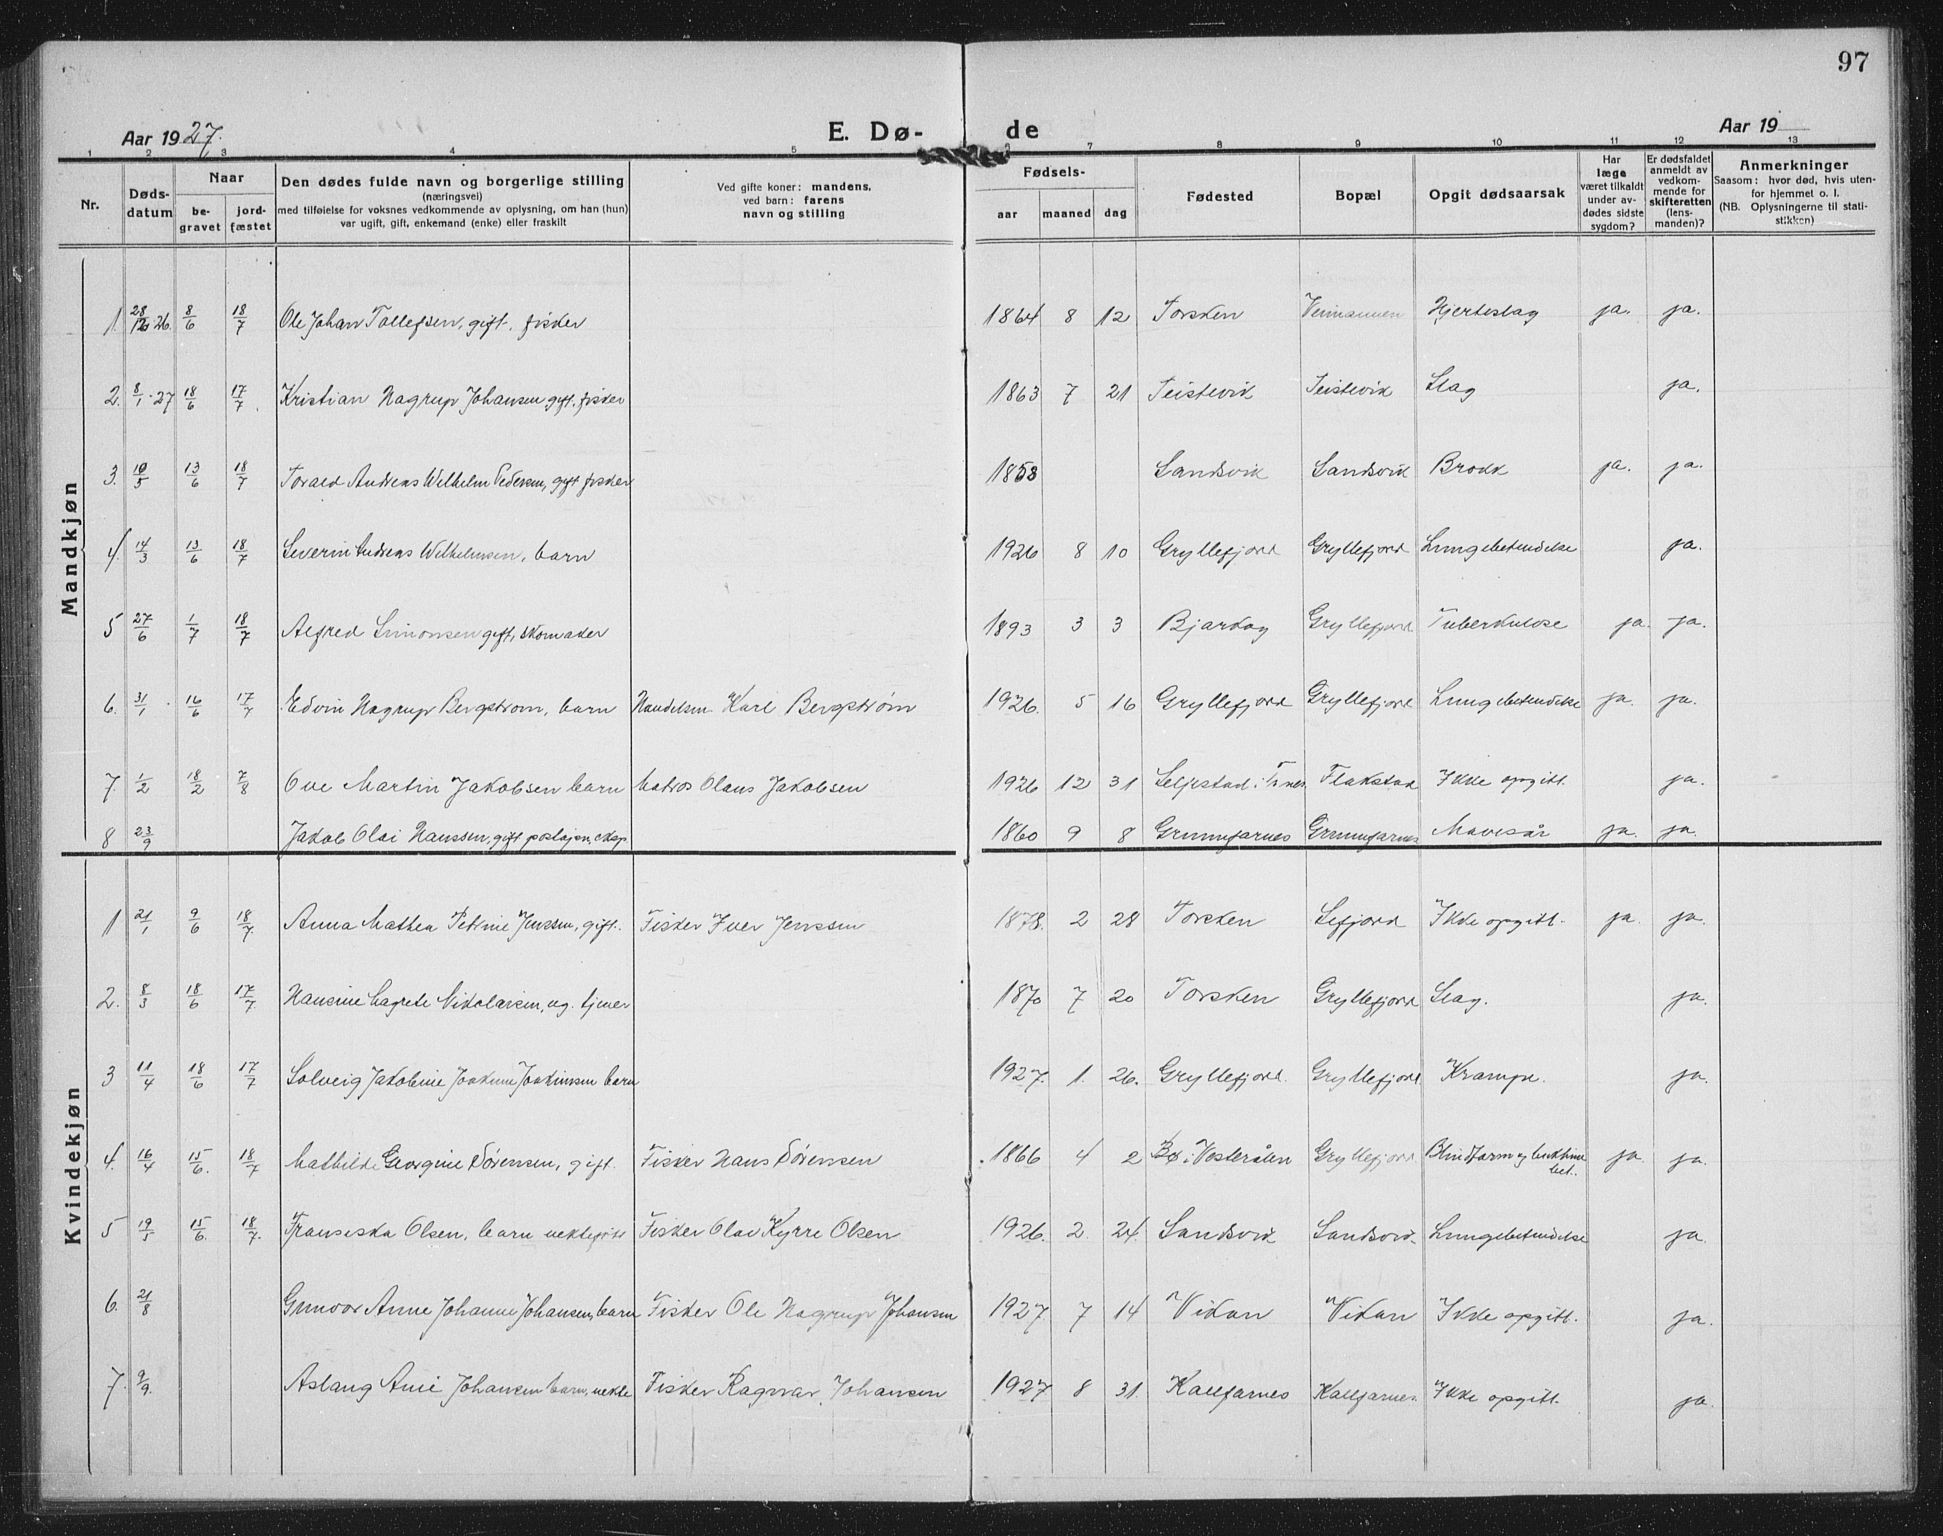 97
Aar 1927.
E. Dø- de
Aar 19
1 2 3 4 5 6 7 8 9 10 11 12 13
Nr.
Døds-
datum
Naar
be-
gravet
jord-
fæstet
Den dødes fulde navn og borgerlige stilling
(næringsvei)
med tilføielse for voksnes vedkommende av oplysning, om han (hun)
var ugift, gift, enkemand (enke) eller fraskilt
Ved gifte koner: mandens,
ved barn: farens
navn og stilling
Fødsels-
aar maaned dag
Fødested
Bopæl
Opgit dødsaarsak
Har
læge
været tilkaldt
under av-
dødes sidste
sygdom?
Er dødsfaldet
anmeldt av
vedkom-
mende for
skifteretten
(lens-
manden)?
Anmerkninger
Saasom: hvor død, hvis uten-
for hjemmet o. l.
(NB. Oplysningerne til stati-
stikken)
Mandkjøn
1 28/12 26. 8/6 18/7 Ole Johan Tollefsen, gift, fisker 1864 8 12 Torsken Hjerteslag ja. ja.
2. 8/1 27 18/6 17/7 Kristian Hagrup Johansen gift. fisker 1863 7 21 Teistevik Teistevik Slag ja.
3. 10/5 13/6 18/7 Torald Andreas Wilhelm Pedersen, gift fisker 1858 Sandsvik Sandsvik Brokk ja. ja.
4. 14/3 13/6 18/7 Severin Andreas Wilhelmsen, barn 1926 8 10 Gryllefjord Gryllefjord Lungebetendelse ja.
5 27/6 1/7 18/7 Alfred Simonsen gift, skomaker 1893 3 3 Bjarkøy Gryllefjord Tuberkulose ja ja.
6. 31/1 16/6 17/7 Edvin Hagrup Bergstrøm, barn Handelsm Karl Bergstrøm 1926. 5 16 Gryllefjord Gryllefjord Lungebetendelse ja. ja.
7. 1/2 18/2 7/8 Ove Martin Jakobsen barn Matros Olaus Jakobsen 1926 12 31 Seljestad i Flakstad Ikke opgitt. ja.
8 23/9 Jakob Olai Hanssen, gift 1860 9 8 Grunnfarnes Grunnfarnes Mavesår ja. ja.
Kvindekjøn
1 21/1 9/6 18/7 Anna Mathea Petrine Jenssen, gift. Fisker Iver Jenssen 1878. 2 28 Torsken Sefjord Ikke opgitt. ja. ja.
2. 8/3 18/6 17/7 Hansine Nikolaisen, ug. tjener 1870 7 20 Torsken Gryllefjord Slag. ja.
3 11/4 18/6 17/7 Solveig Jakobine Joakime Joakimsen barn 1927. 1. 26. Gryllefjord. Gryllefjord. Krampe. ja.
4. 16/4 15/6. 18/7 Mathilde Georgine Sørensen, gift. Fisker Hans Sørensen 1866 4 2 Bø i Vesterålen Gryllefjord ja. ja.
5 19/5 15/6. 18/7. Fransiska Olsen, barn Fisker Olav Kyrre Olsen 1926. 2. 24. Sandsvik Sandsvik. Lungebetendelse ja.
6. 21/8 Gunvor Anne Johanne Johansen, barn Fisker Ole Hagrup Johansen 1927 7 14 Vikan Vikan Ikke opgitt. ja.
7. 9/9. Aslaug Johansen barn, Fisker Ragnvar Johansen 1927 8 31. Kalfarnes Kalfarnes. Ikke opgitt. ja.